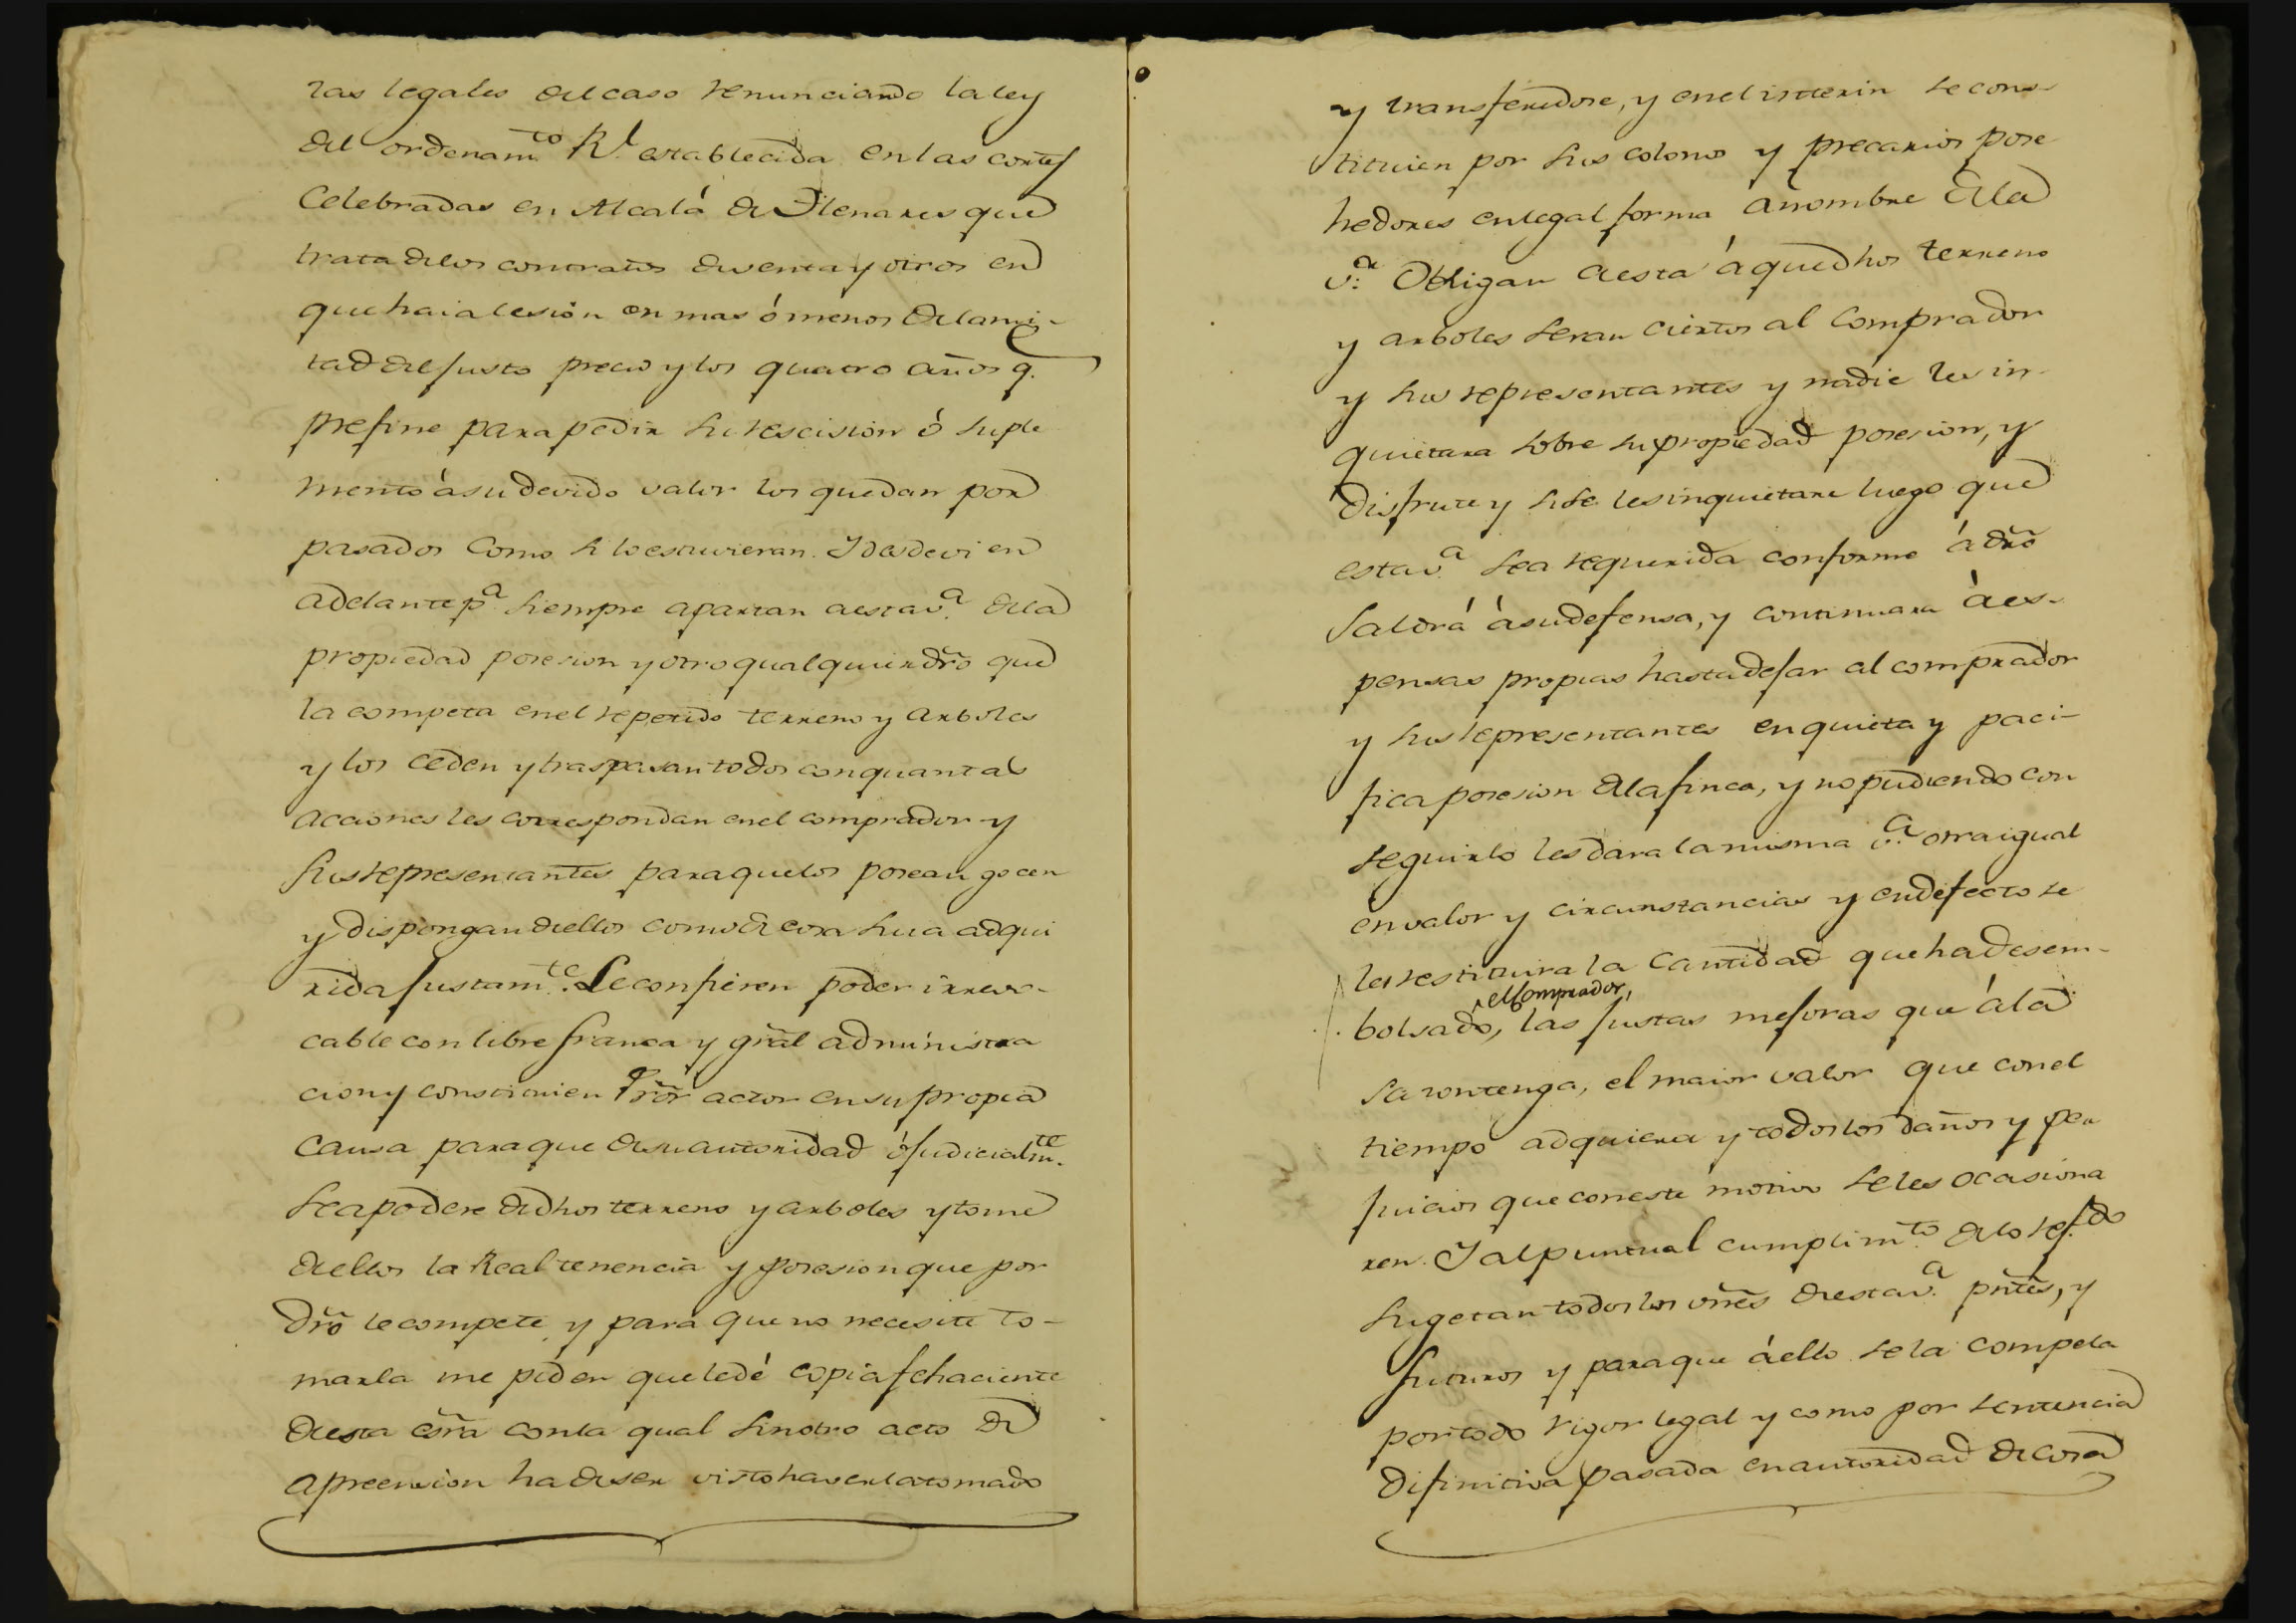 ras legales del caso renunciando la ley
del ordenamto Rl establecida en las cortes
Celebradas en Alcalá de Henares que
trata delos contratos de venta y otros en
que haia lesión en mas ó menos dela mi-
tad del justo precio y los quatro años q.
prefine para pedir su rescision ó suple
mento á su devido valor los que dan por
pasados Como si lo estuvieran. Y desde oi en
adelante pa siempre apartan a esta va dela
propiedad posesion y otro qualquier dro que
la competa en el repetido terreno y arboles
y los ceden y traspasan todos con quantas
acciones les correspondan en el comprador y
sus representantes para que los posean gocen
y dispongan dellos como de cosa sua adqui
rida justamte. Le confieren poder irrevo-
cable con libre franca y gral administra
cion y constituien Pror actor en su propia
causa para que de su autoridad ó judicialmte
se apodere de dhos terreno y arboles y tome
dellos la Real tenencia y posesion que por
dro le compete y para que no necesite to-
marla me piden que le dé copia fehaciente
desta esra con la qual sin otro acto de
apreension ha de ser visto haverla tomado
y transferidose, y en el interin se cons-
tituien por sus colonos y precarios pose
hedores en legal forma a nombre de la
va. Obligan a esta á que dhos terreno
y arboles seran ciertos al Comprador
y sus representantes y nadie les in-
quietara sobre su propiedad posesion, y
disfrute y si se les inquietare luego que
esta va sea requerida conforme á dro
saldrá á su defensa, y continuara á es-
pensas propias hasta dejar al comprador
y sus representantes en quieta y paci-
fica posesion de la finca, y no pudiendo con
seguirlo les dara la misma va otra igual
en valor y circunstancias y en defecto se
les restituira la Cantidad que ha desem-
el comprador,
bolsado, las justas mejoras que á la
sazon tenga, el maior valor que con el
tiempo adquiera y todos los daños y per
juicios que con este motivo se les ocasiona
ren. Y al puntual cumplimto de lo refdo
sugetan todos los vnes desta va pntes, y
futuros y para que á ello se la compela
por todo rigor legal y como por sentencia
difinitiva pasada en autoridad de cosa